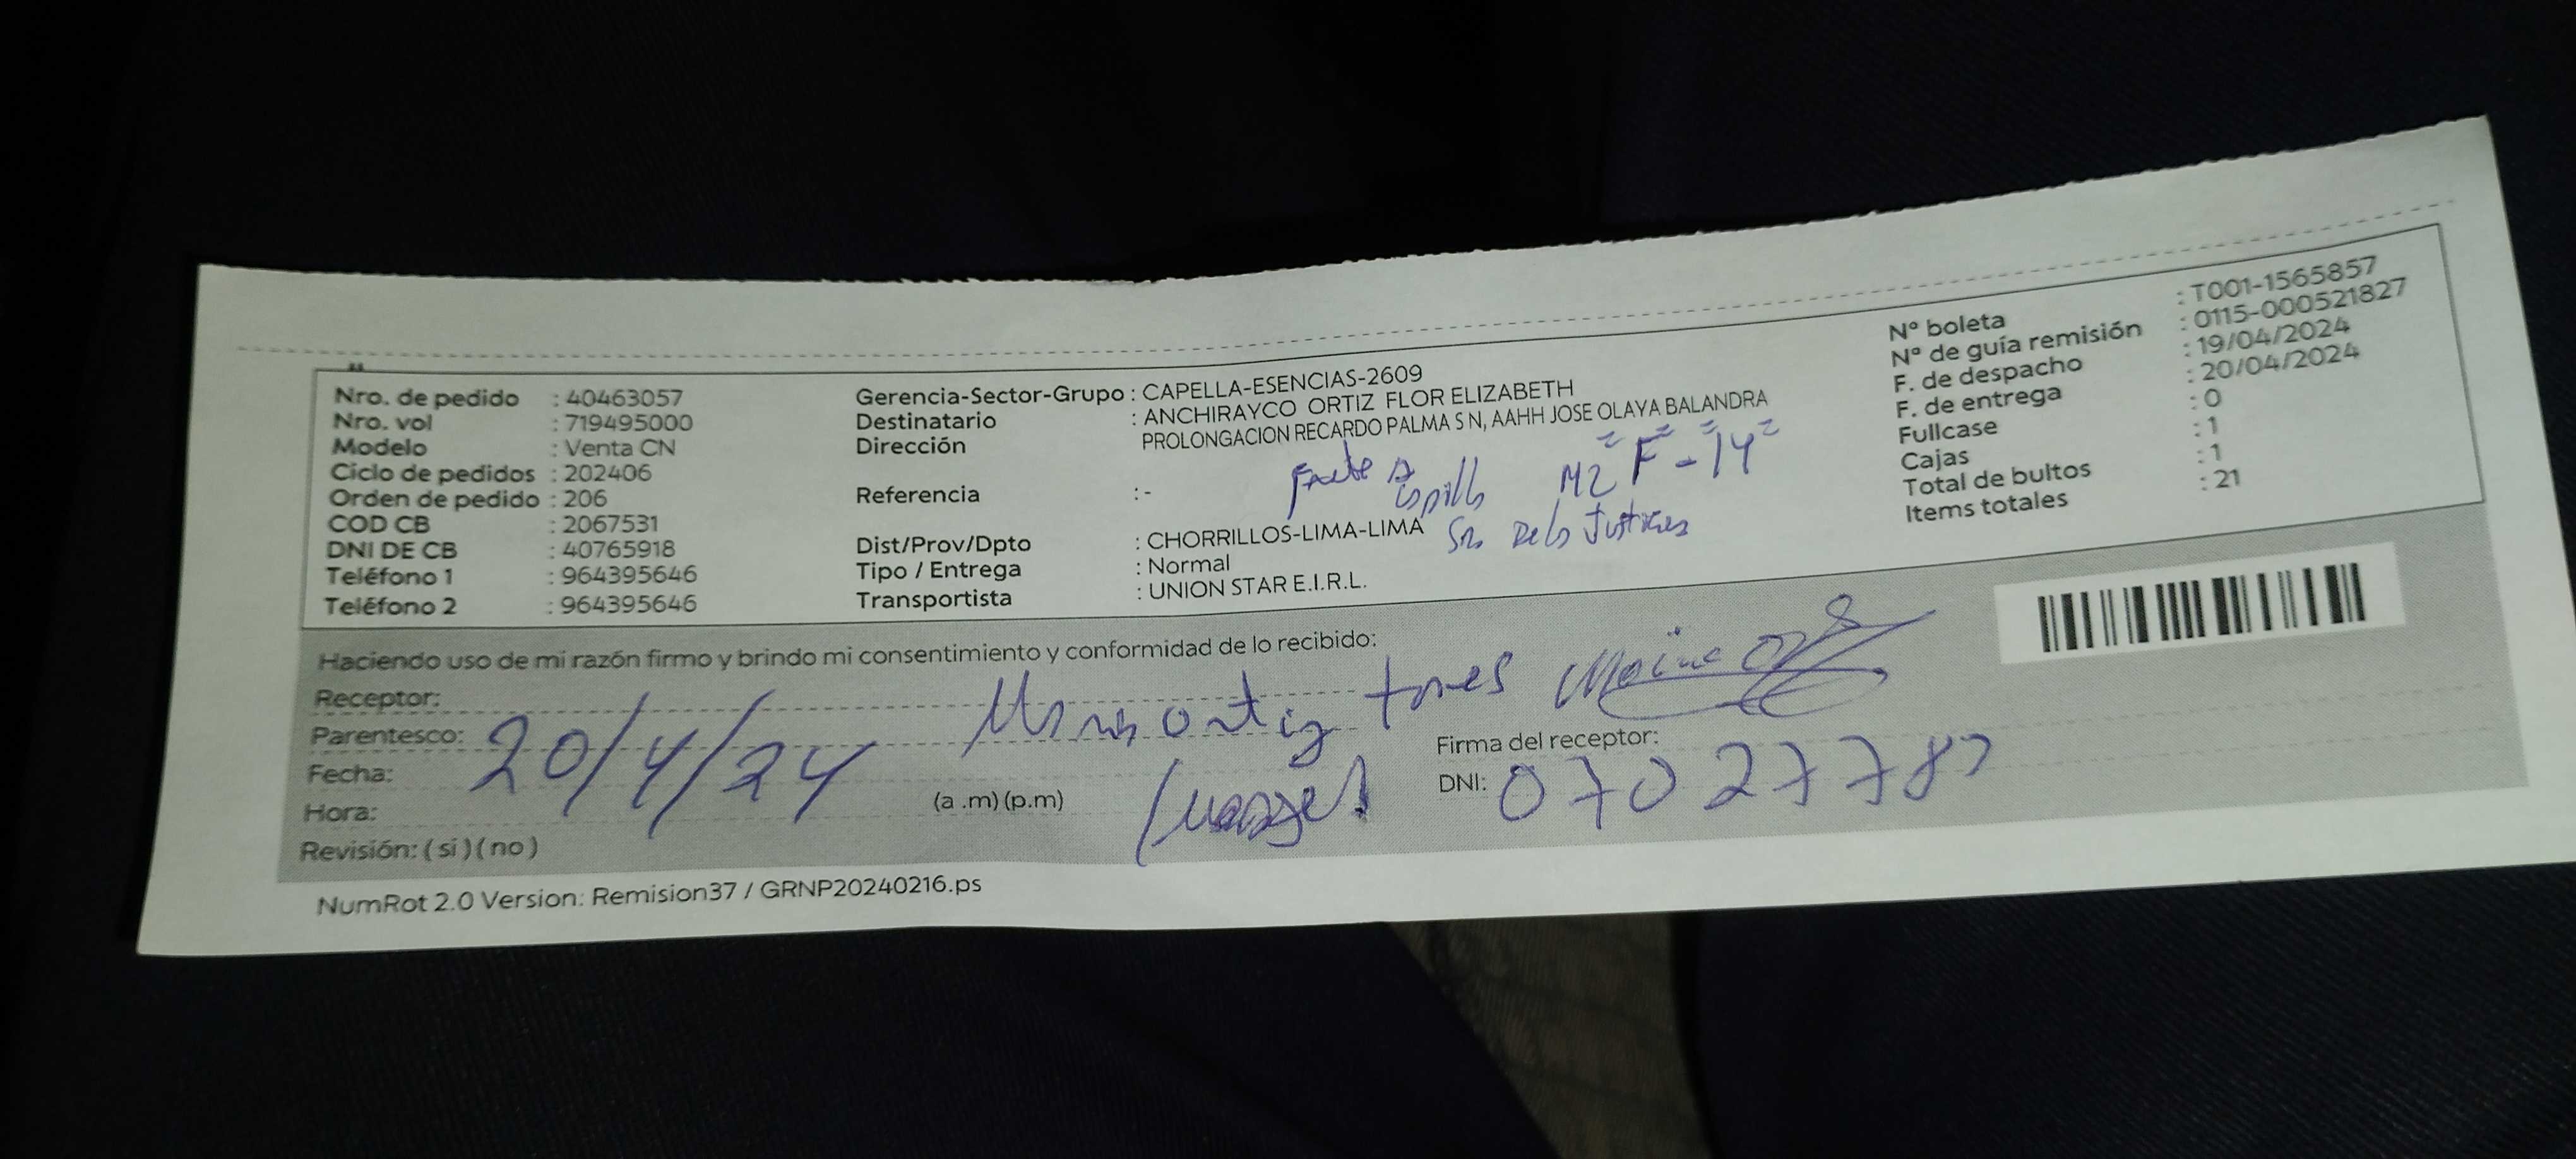 Nro. de pedido : 40463057
Nro. vol : 719495000
Modelo : Venta CN
Ciclo de pedidos : 202406
Orden de pedido : 206
COD CB : 2067531
DNI DE CB : 40765918
Teléfono 1 : 964395646
Teléfono 2 : 964395646
Gerencia-Sector-Grupo : CAPELLA-ESENCIAS-2609
Destinatario : ANCHIRAYCO ORTIZ FLOR ELIZABETH
Dirección PROLONGACION RECARDO PALMA S N, AAHH JOSE OLAYA BALANDRA
MZ F - 14
Referencia : -
Dist/Prov/Dpto : CHORRILLOS-LIMA-LIMA
Tipo / Entrega : Normal
Transportista : UNION STAR E.I.R.L.
N° boleta : T001-1565857
N° de guía remisión : 0115-000521827
F. de despacho : 19/04/2024
F. de entrega : 20/04/2024
Fullcase : 0
Cajas : 1
Total de bultos : 1
Items totales : 21
Haciendo uso de mi razón firmo y brindo mi consentimiento y conformidad de lo recibido:
Receptor: ortiz torres
Parentesco:
Fecha: 20/4/24
Hora: (a .m) (p.m)
Revisión: ( si ) ( no )
Firma del receptor:
DNI: 0702778
NumRot 2.0 Version: Remision37 / GRNP20240216.ps